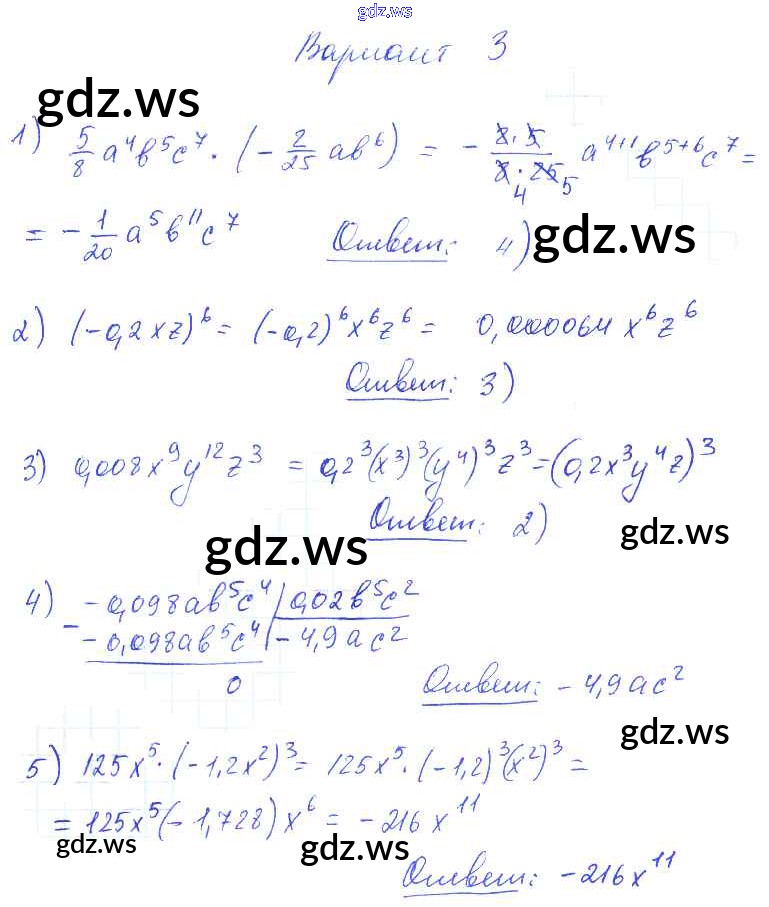 gdz.ws
Вариант 3
gdz.ws
1) 5/8 a⁴b⁵c⁷ · (− 2/25 ab⁶) = − (2·5)/(8·25) a⁴⁺¹b⁵⁺⁶c⁷ =
4 5
= − 1/20 a⁵b¹¹c⁷ Ответ: 4)
gdz.ws
2) (−0,2xz)⁶ = (−0,2)⁶x⁶z⁶ = 0,000064 x⁶z⁶
Ответ: 3)
3) 0,008x⁹y¹²z³ = 0,2³(x³)³(y⁴)³z³ = (0,2x³y⁴z)³
Ответ: 2)
gdz.ws
gdz.ws
4) − −0,098ab⁵c⁴ | 0,02b⁵c²
−0,098ab⁵c⁴ | −4,9ac²
0
Ответ: −4,9ac²
gdz.ws
5) 125x⁵·(−1,2x²)³ = 125x⁵·(−1,2)³(x²)³ =
= 125x⁵(−1,728)x⁶ = −216x¹¹
gdz.ws
gdz.ws
Ответ: −216x¹¹